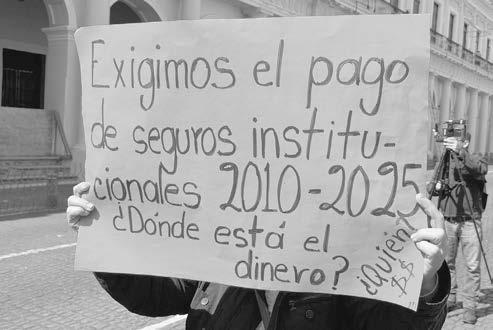 Exigimos el pago
de seguros institu-
cionales 2010-2025
¿Dónde está el
dinero?
¿Quién?
$$